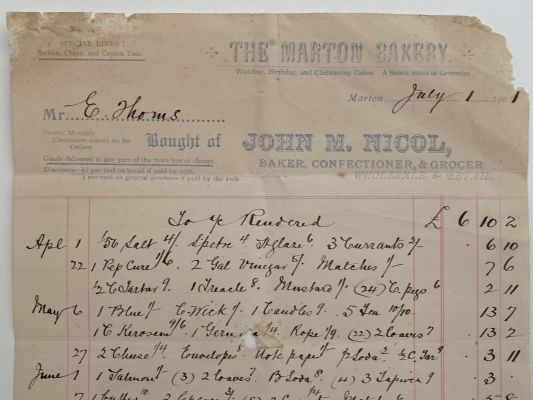 SPECIAL LINES:
Indian, China, and Ceylon Teas
THE MARTON BAKERY.
Wedding, Birthday, and Christening Cakes A Select Stock of Groceries
Marton July 1 1901
Mr. E. Thoms
Terms, Monthly
Customers waited on for
Orders
Bought of JOHN M. NICOL,
Goods delivered to any part of the town free of charge
BAKER, CONFECTIONER, & GROCER
Discount— ½d per loaf on bread if paid by 10th
per cent on general groceries if paid by the 10th
WHOLESALE & RETAIL
To a/c Rendered £ 6 10 2
Apl 1 1/56 Salt 4/ 4 Glaze 6 3 Currants 2/ 6 10
22 1 Pep Cure 1/6 2 Gal Vinegar 5/ Matches 1/ 7 6
½ C Tartar 9 1 Treacle 8 Mustard 1/ (24) C pegs 6 2 11
May 6 1 Blue 1/ C Wick 1/ 1 Candles 9 5 Tea 10/10 13 7
1 C Kerosene 9/6 1 1/4 Rope 1/9 (22) 2 loaves 7 13 2
27 2 Cheese 1/4 Envelopes Note paper 1/ p Soda 2 ½ C Tar 9 3 11
June 1 1 Salmon 1/ (3) 2 loaves 7 B Soda 8 (4) 3 Tapioca 9 3